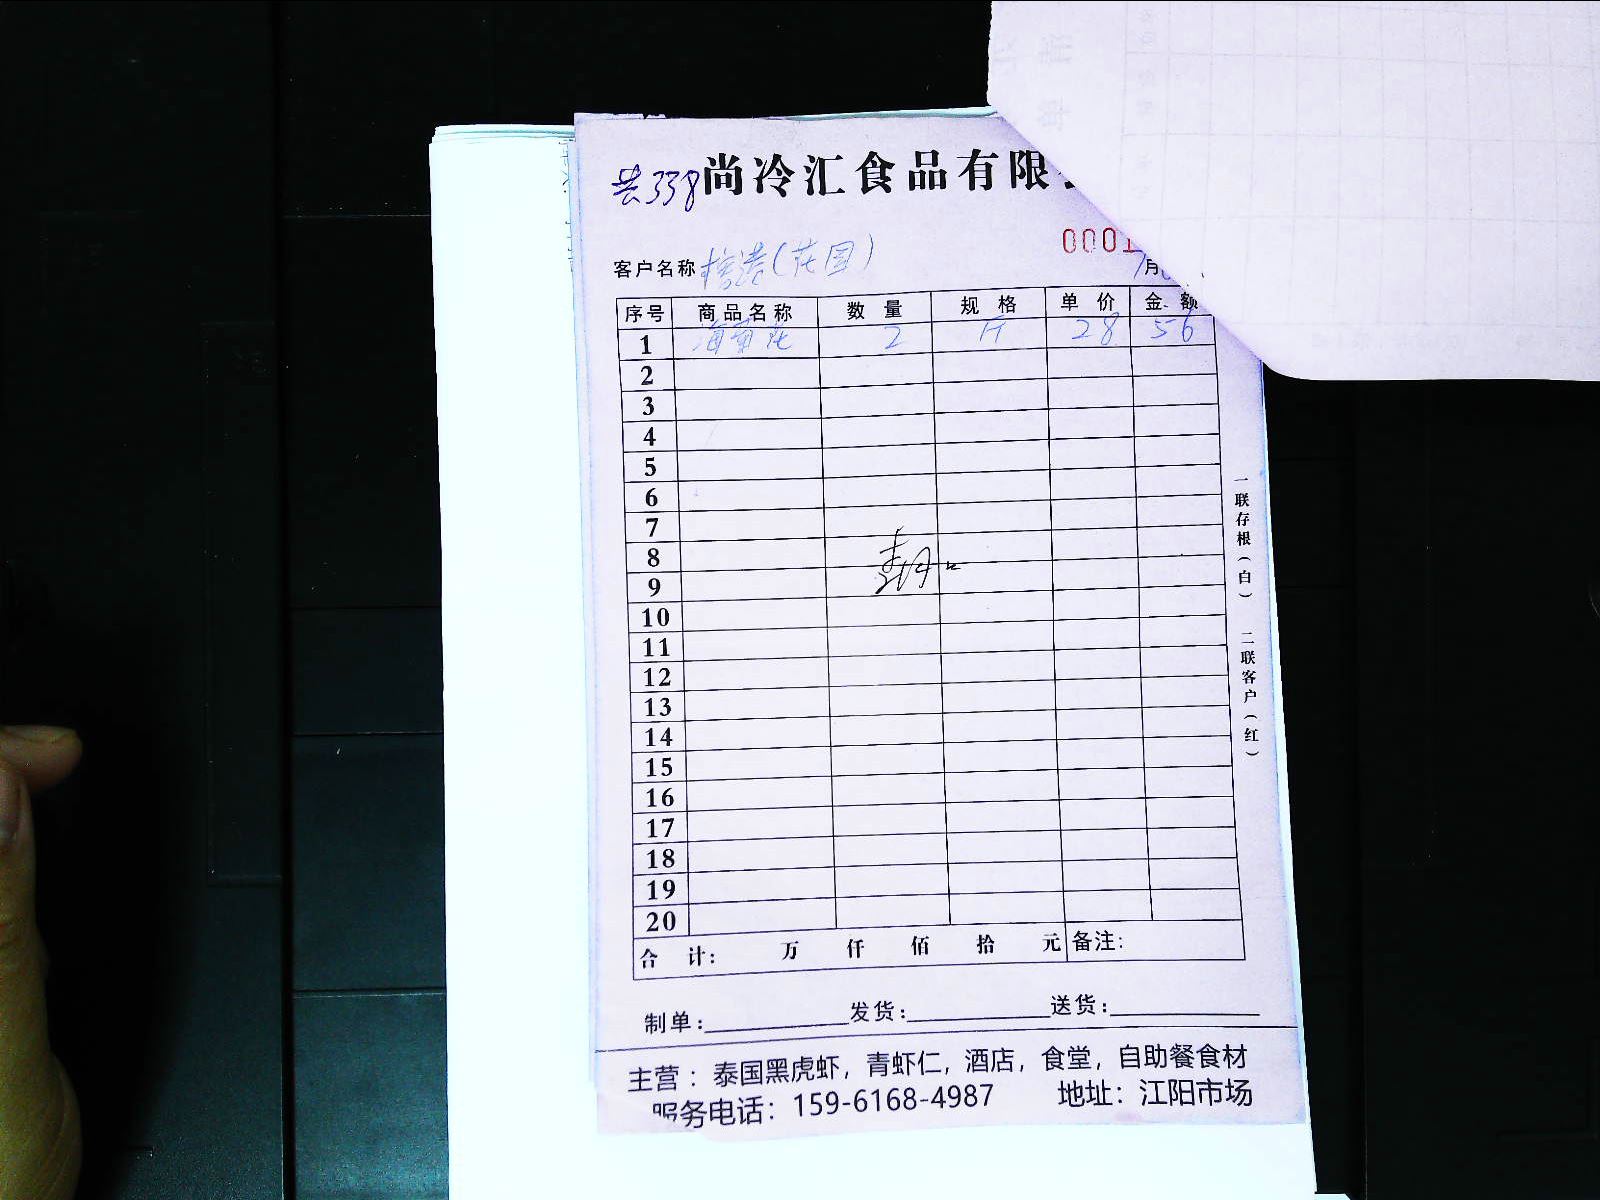 共338
尚冷汇食品有限
0001
客户名称 (花园) 月
序号 商品名称 数量 规格 单价 金额
1 海蜇花 2 斤 28 56
2
3
4
5
6
7
8
9
10
11
12
13
14
15
16
17
18
19
20
合计: 万 仟 佰 拾 元 备注:
一联存根(白) 二联客户(红)
制单: 发货: 送货:
主营：泰国黑虎虾，青虾仁，酒店，食堂，自助餐食材
服务电话：159-6168-4987 地址：江阳市场